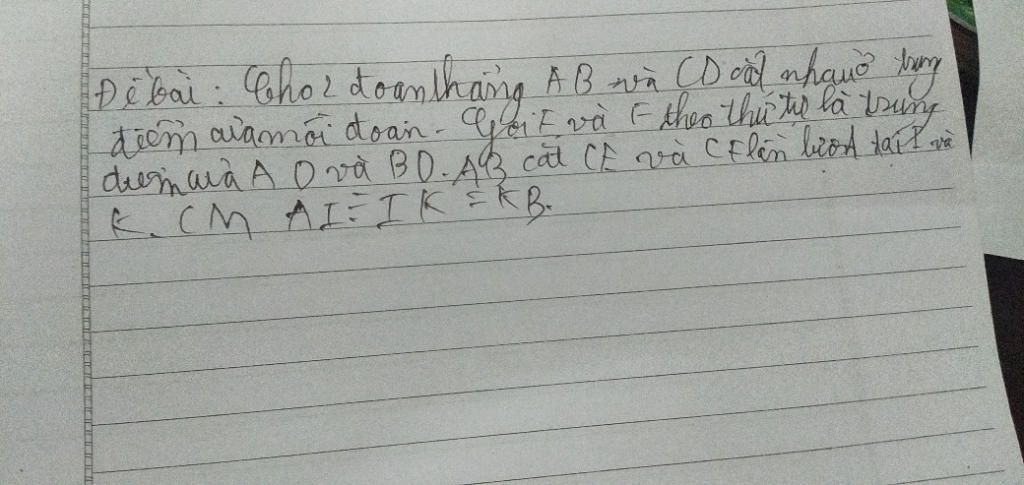 Đề bài: Cho 2 đoạn thẳng AB và CD cắt nhau ở trung
điểm của mỗi đoạn. Gọi E và F theo thứ tự là trung
điểm của AD và BD. AB cắt CE và CF lần lượt tại I và
K. CM AI = IK = KB.